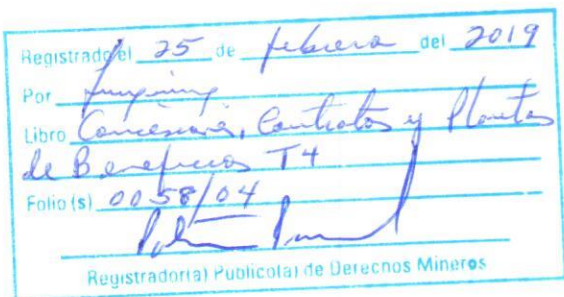 Registrado el 25 de febrero del 2019
Por
Libro Concesiones, Contratos y Plantas
de Beneficios T4
Folio (s) 0058/04
Registrador(a) Publico(a) de Derechos Mineros